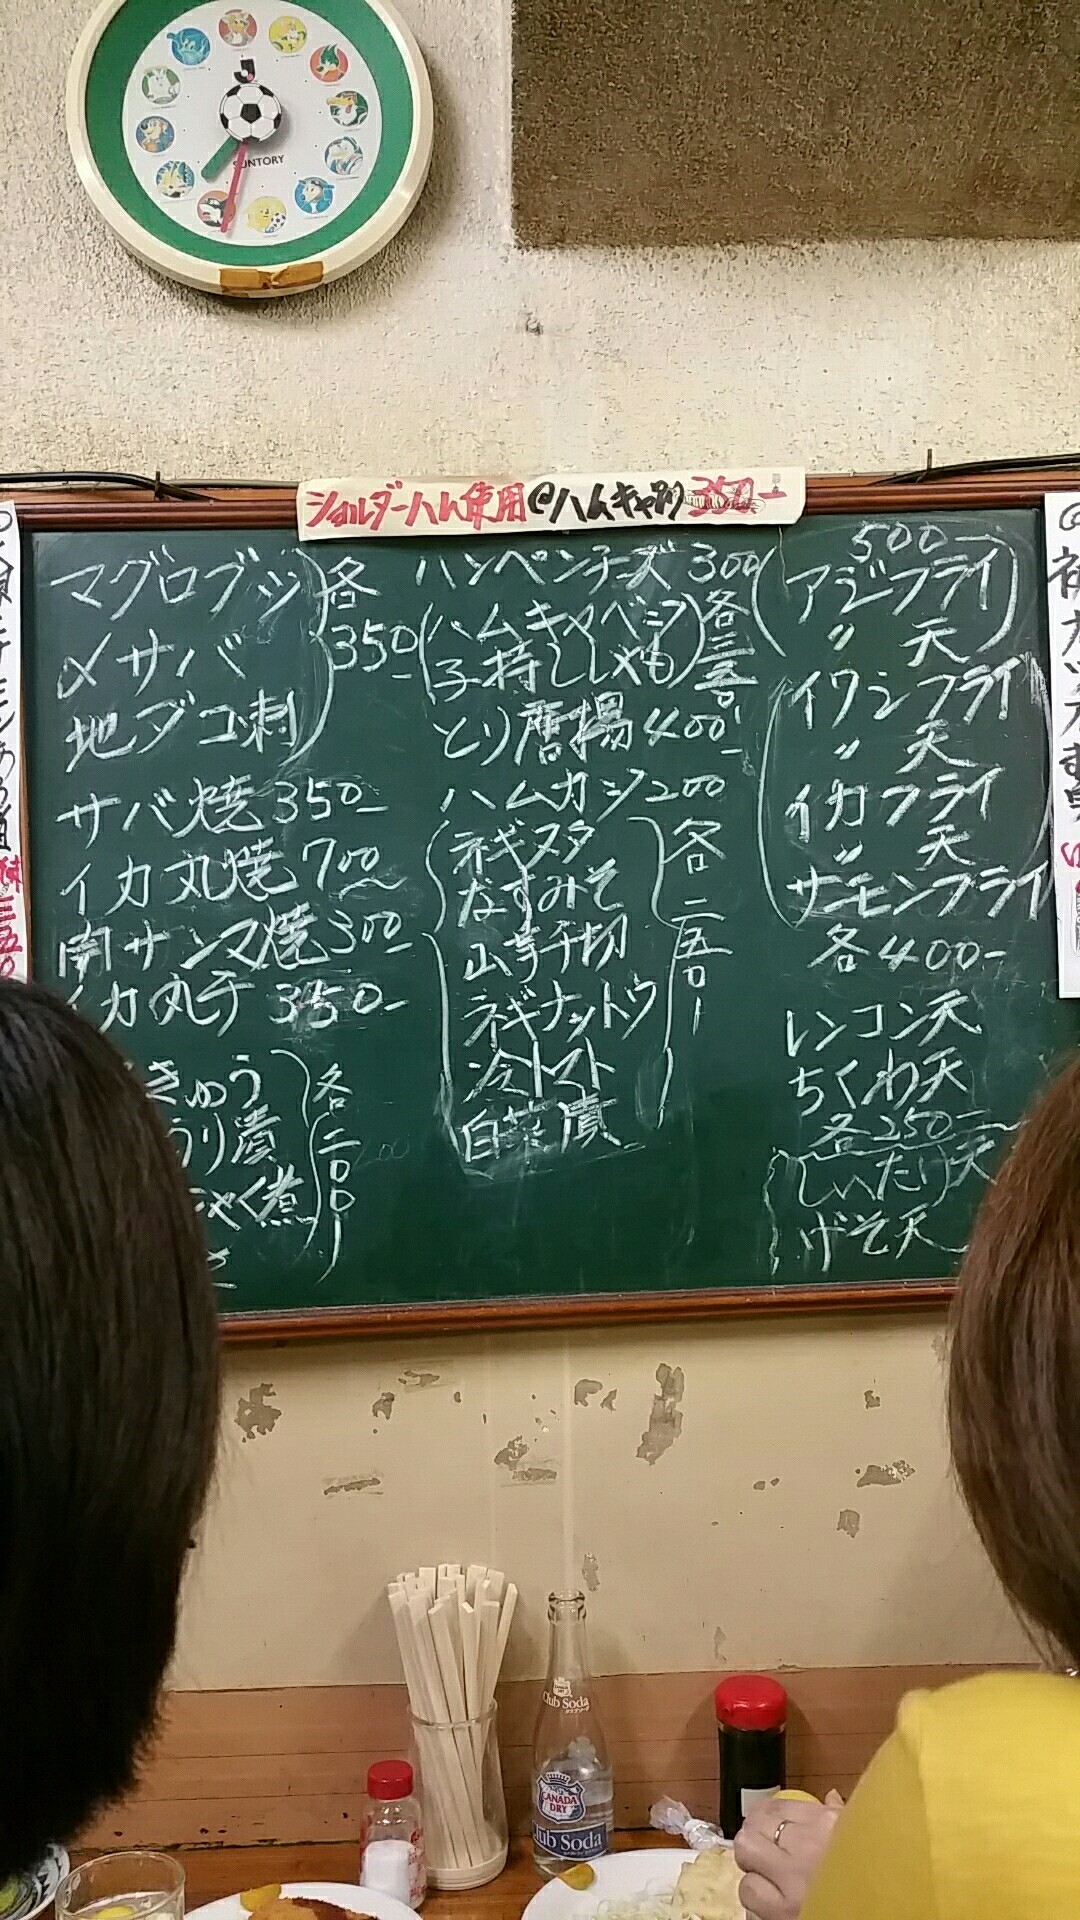 SUNTORY
ショルダーハム使用@ハムキャベツ350-
マグロブツ
〆サバ
地ダコ刺
各
350-
サバ焼350-
イカ丸焼700
開サンマ焼300-
イカ丸干350-
きゅう
うり漬
ゃく煮
各二〇〇-
ハンペンチーズ300
ハムキャベツ
子持ししゃも
各三五〇-
とり唐揚400-
ハムカツ200
ネギヌタ
なすみそ
山芋千切
ネギナットウ
冷トマト
白菜漬
各二五〇-
500-
アジフライ
〃天
イワシフライ
〃天
イカフライ
〃天
サーモンフライ
各400-
レンコン天
ちくわ天
各250-
げそ天
Club Soda
CANADA DRY
Club Soda